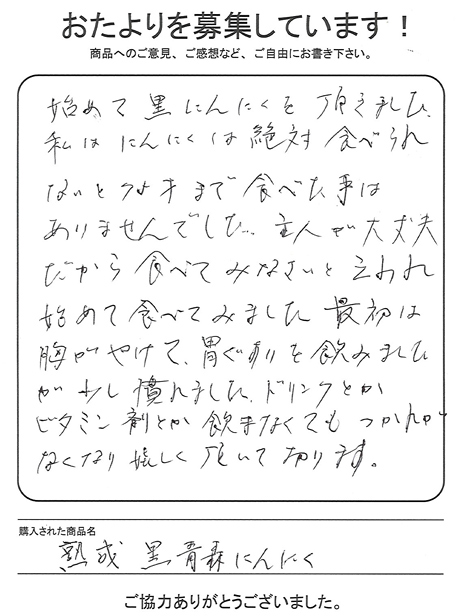 おたよりを募集しています！
商品へのご意見、ご感想など、ご自由にお書き下さい。
始めて 黒にんにくを 頂きました、
私は にんにくは 絶対 食べられ
ないと 今まで 食べた事は
ありませんでした。主人が大丈夫
だから 食べて みなさいと 云われ
始めて 食べてみました 最初は
胸がやけて、胃ぐすりを飲みました
が 少し 慣れました、ドリンクとか
ビタミン 剤とか 飲まなくても つかれが
なくなり 嬉しく 頂いて 切ります。
購入された商品名
熟成 黒 青森にんにく
ご協力ありがとうございました。